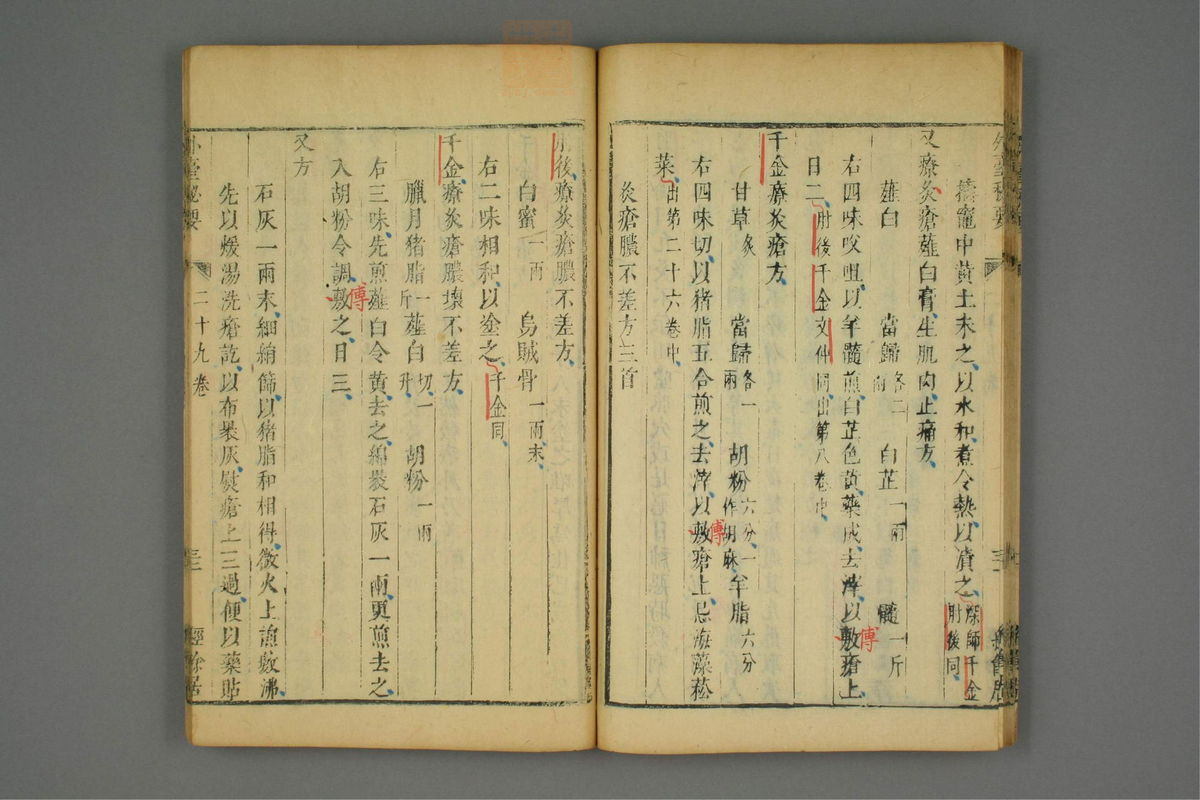 外臺秘要
擣竈中黃土末之以水和煮令熱以漬之深師千金肘後同
又療灸瘡薤白膏生肌肉止痛方
薤白 當歸各二兩 白芷一兩 髓一斤
右四味㕮咀以羊髓煎白芷色黃藥成去滓以敷瘡上傅
日二肘後千金文仲同出第八卷中
千金療灸瘡方
甘草炙 當歸各一兩 胡粉六分一作胡麻 羊脂六分
右四味切以猪脂五合煎之去滓以敷瘡上忌海藻菘傅
菜出第二十六卷中
灸瘡膿不差方三首
肘後療灸瘡膿不差方
白蜜一兩 烏賊骨一兩末
右二味相和以塗之千金同
千金療灸瘡膿壞不差方
臘月猪脂一斤 薤白切一升 胡粉一兩
右三味先煎薤白令黃去之綿裹石灰一兩更煎去之
入胡粉令調敷之日三傅
又方
石灰一兩末細絹篩以猪脂和相得微火上煎數沸
先以煖湯洗瘡訖以布裹灰熨瘡上三過便以藥貼
外臺秘要 二十九卷 三二 經餘居